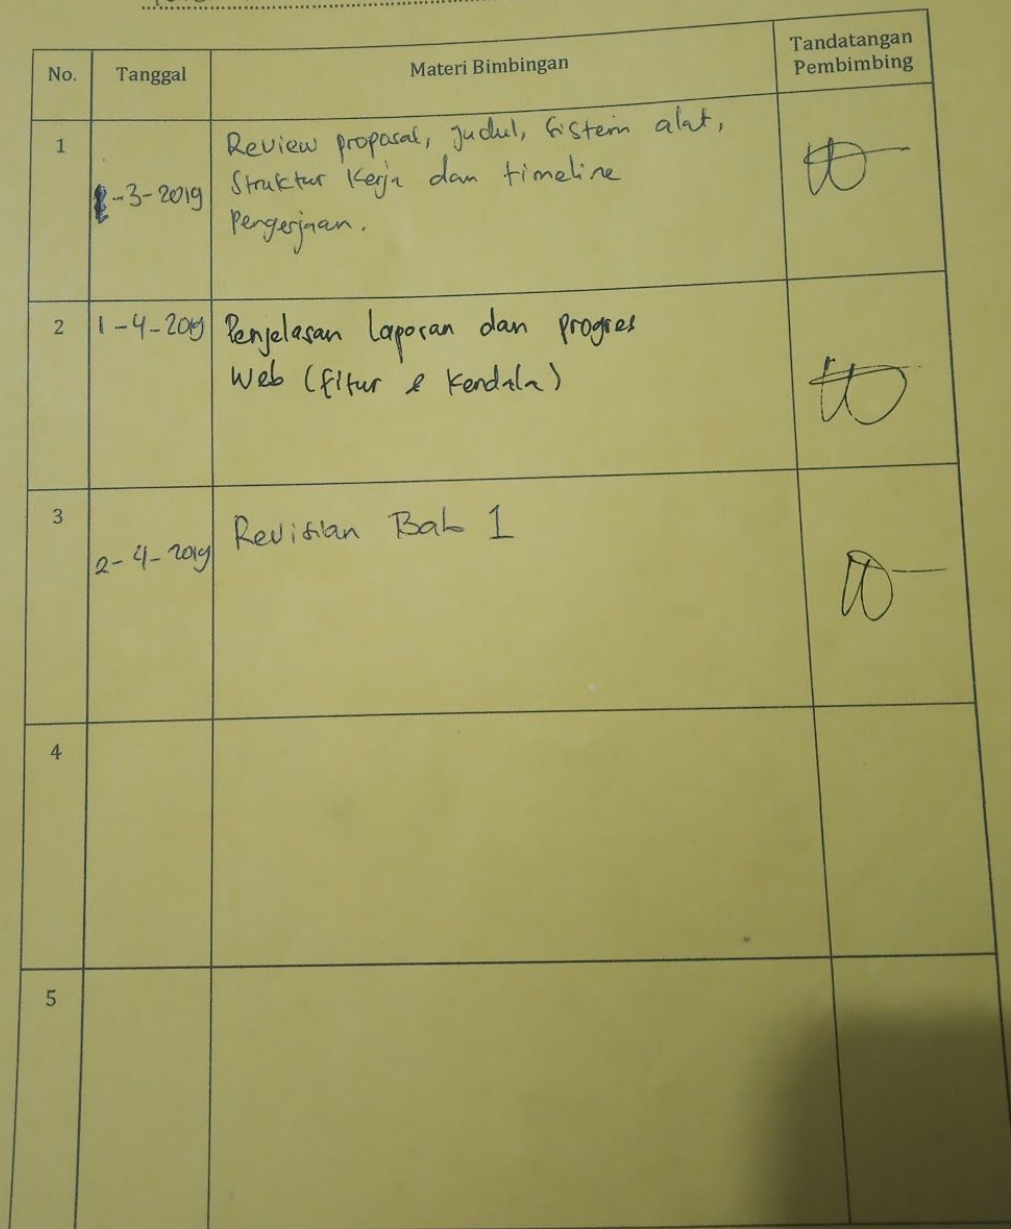 No. Tanggal Materi Bimbingan Tandatangan
Pembimbing
1
Review proposal, judul, sistem alat,
-3-2019 Struktur Kerja dan timeline
Pengerjaan.
2 1-4-2019 Penjelasan laporan dan progres
Web (fitur & Kendala)
3
Revisian Bab 1
2-4-2019
4
5